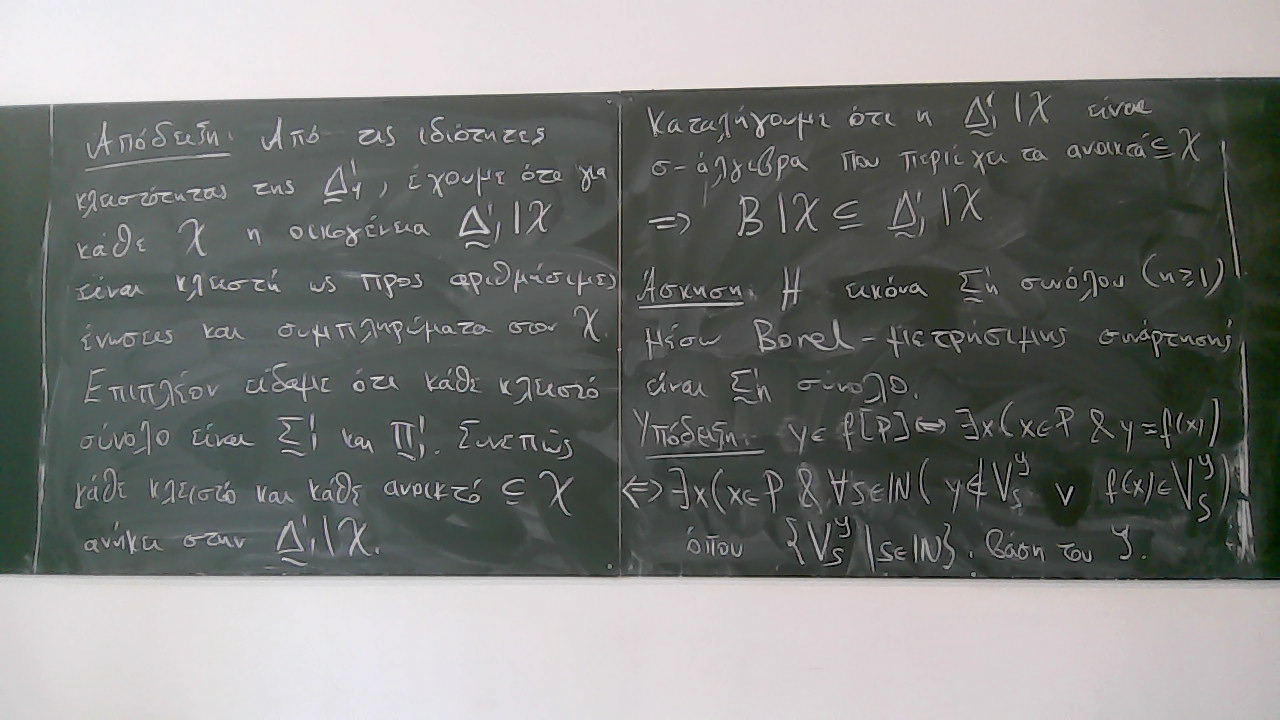 Απόδειξη: Από τις ιδιότητες
κλειστότητας της Δ̰¹₁, έχουμε ότι για
κάθε 𝒳 η οικογένεια Δ̰¹₁|𝒳
είναι κλειστή ως προς αριθμήσιμες
ενώσεις και συμπληρώματα στον 𝒳.
Επιπλέον είδαμε ότι κάθε κλειστό
σύνολο είναι Σ̰¹₁ και Π̰¹₁. Συνεπώς
κάθε κλειστό και κάθε ανοικτό ⊆ 𝒳
ανήκει στην Δ̰¹₁|𝒳.
Καταλήγουμε ότι η Δ̰¹₁|𝒳 είναι
σ-άλγεβρα που περιέχει τα ανοικτά ⊆ 𝒳
=> B|𝒳 ⊆ Δ̰¹₁|𝒳
Άσκηση: Η εικόνα Σ̰¹ₙ συνόλου (n≥1)
μέσω Borel-μετρήσιμης συνάρτησης
είναι Σ̰¹ₙ σύνολο.
Υπόδειξη: y∈f[P] <=> ∃x(x∈P & y=f(x))
<=> ∃x(x∈P & ∀s∈ℕ(y∉V_s^𝒴 ∨ f(x)∈V_s^𝒴))
όπου {V_s^𝒴 | s∈ℕ} βάση του 𝒴.